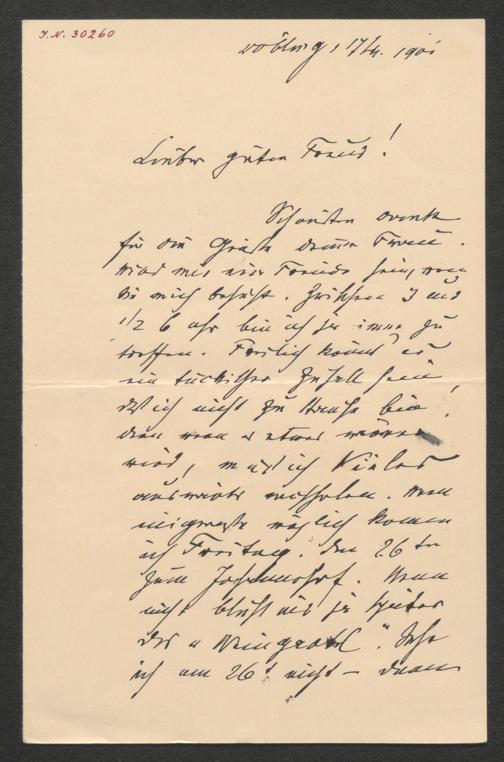 J.N. 30260
Döbling, 17/4. 1901
Lieber guter Freund!
Schönsten Dank
für die Grüße deiner Freun
wird mir eine Freude sein, wenn
Du mich besuchst. Zwischen 3 und
1/2 6 Uhr bin ich ja immer zu
treffen. Freilich könnt es
ein tückischer Zufall sein,
daß ich nicht zu Hause bin,
denn wenn es etwas wärmer
wird, muß ich Vieles
auswärts nachholen. Wenn
möglich komme
ich Freitag, den 26ten
zum Johannshof. Wenn
nicht bleibt uns ja später
das "Weingartl". Sehe
ich am 26t nicht – dann